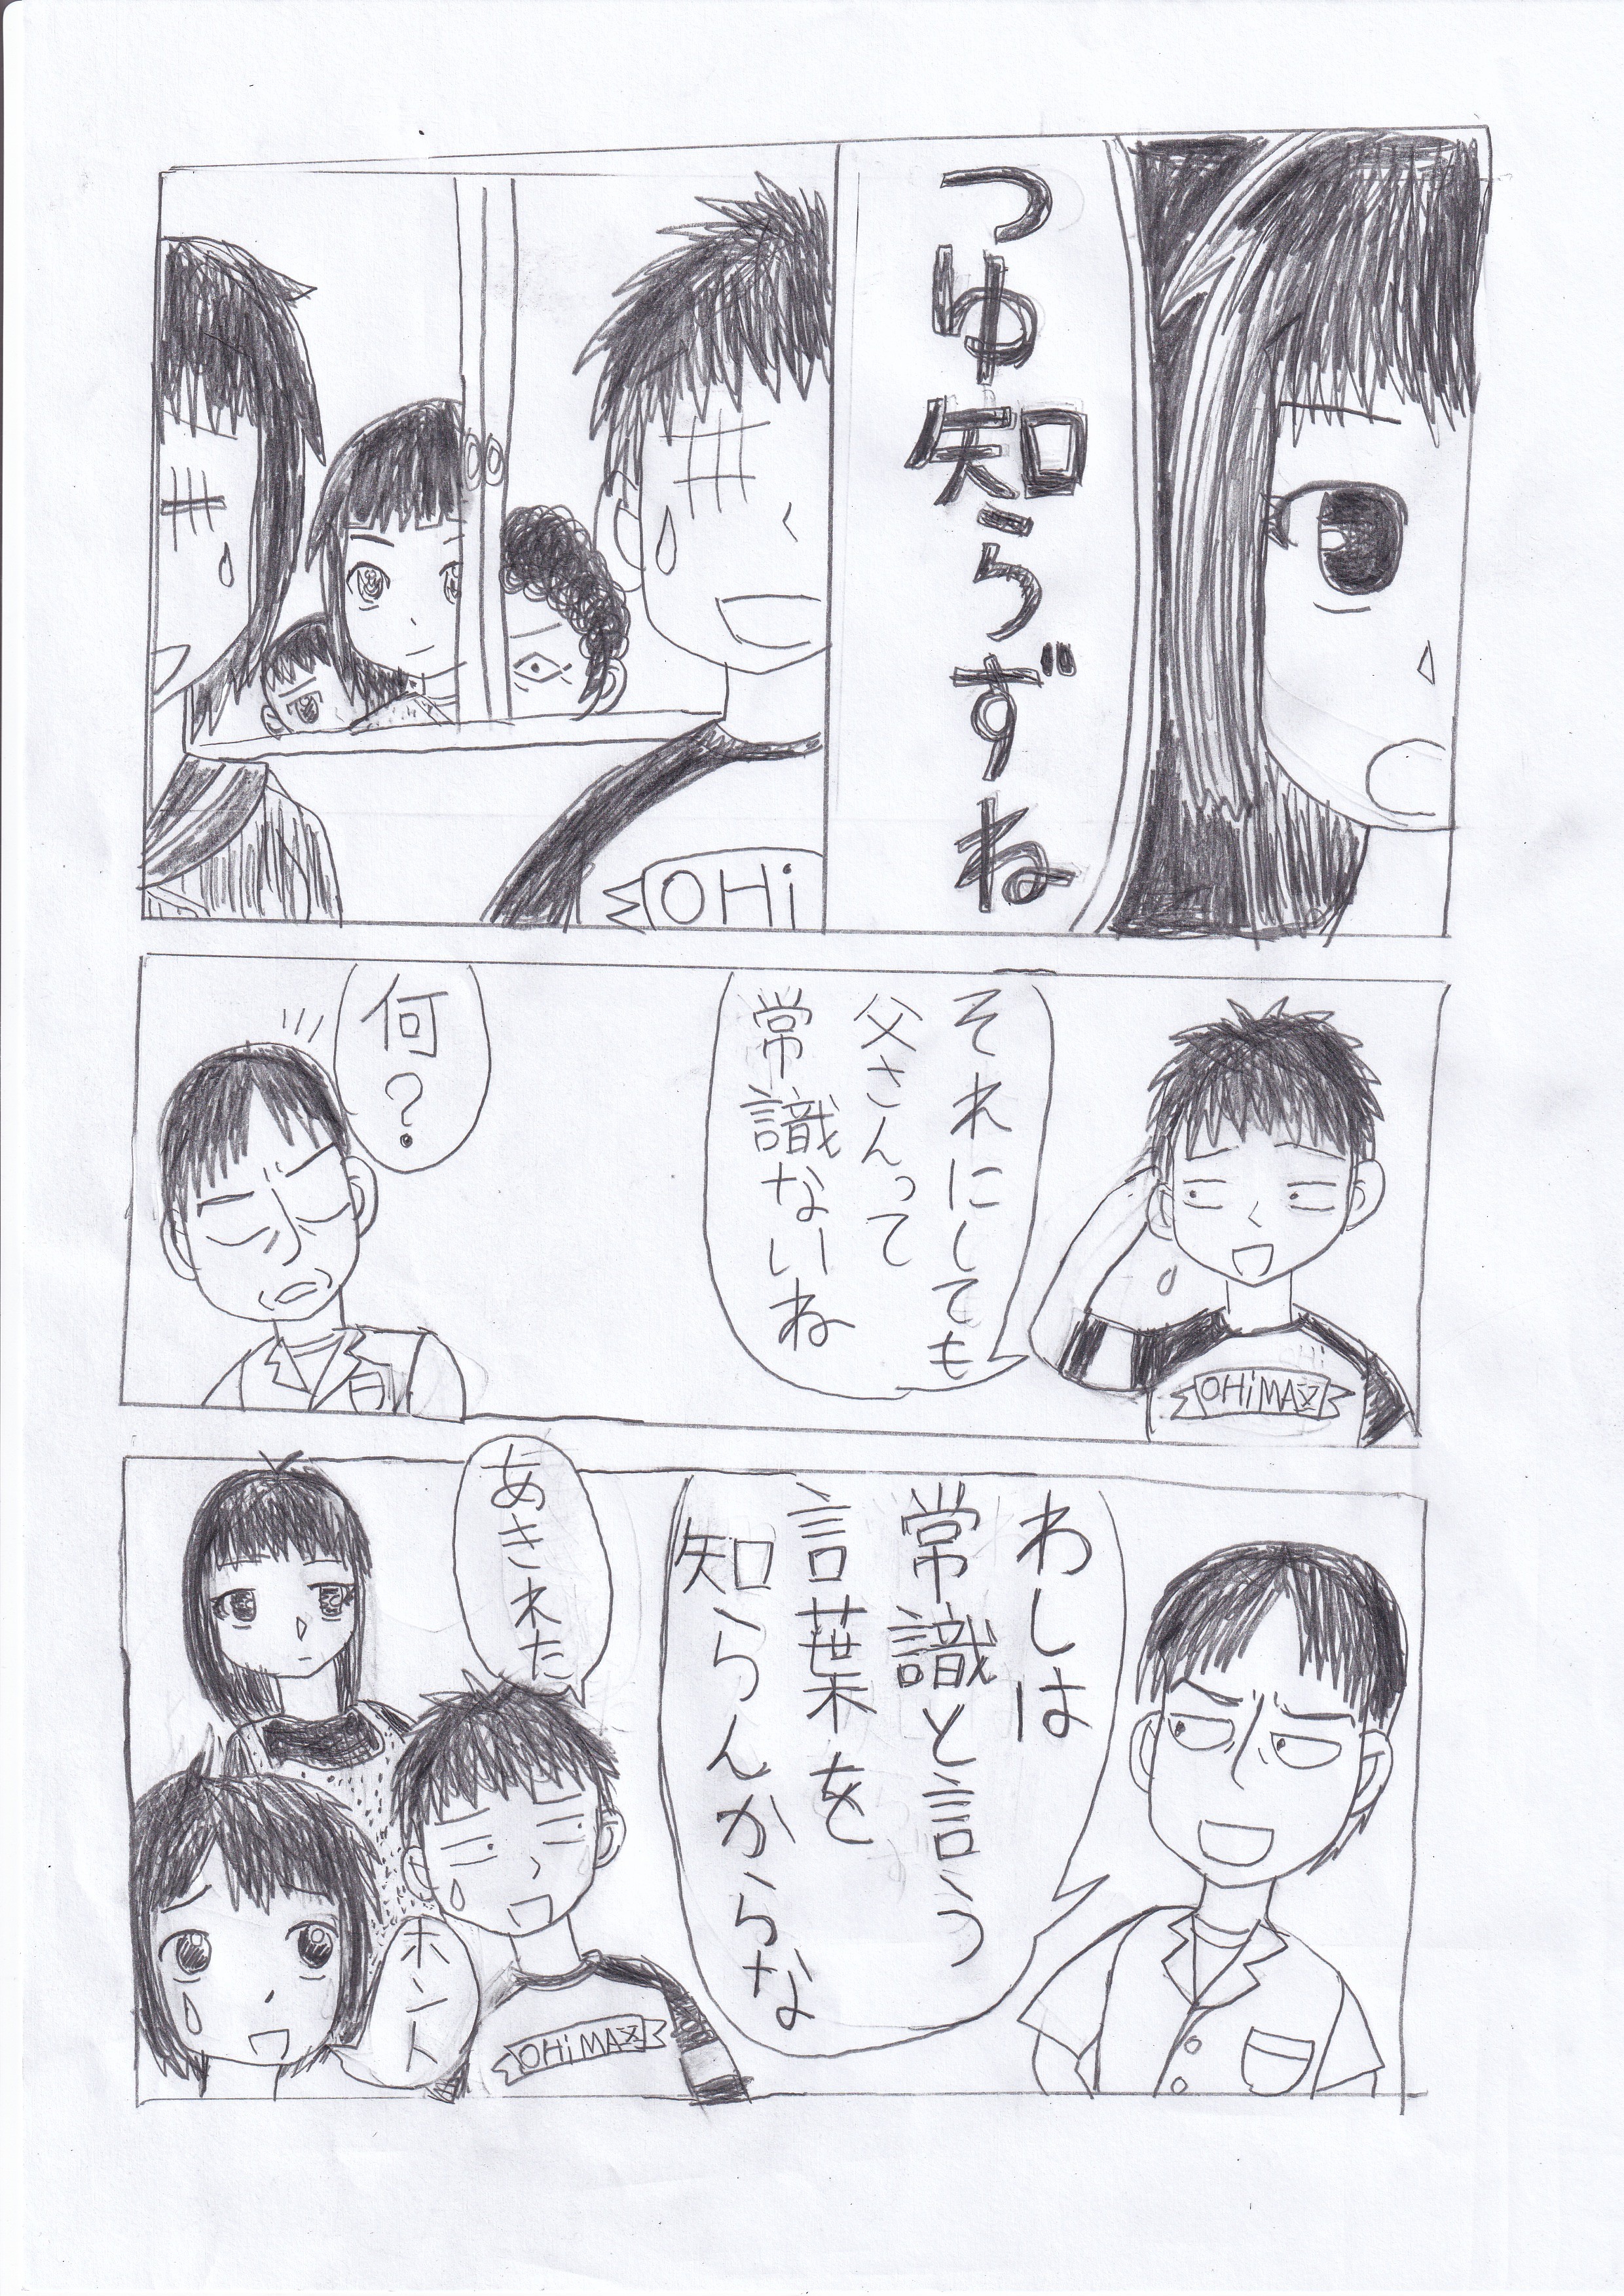 つゆ知らずね
OHi
それにしても
父さんって
常識ないね
OHiMAX
何?
わしは
常識と言う
言葉を
知らんからな
あきれた
ホント
OHiMAX